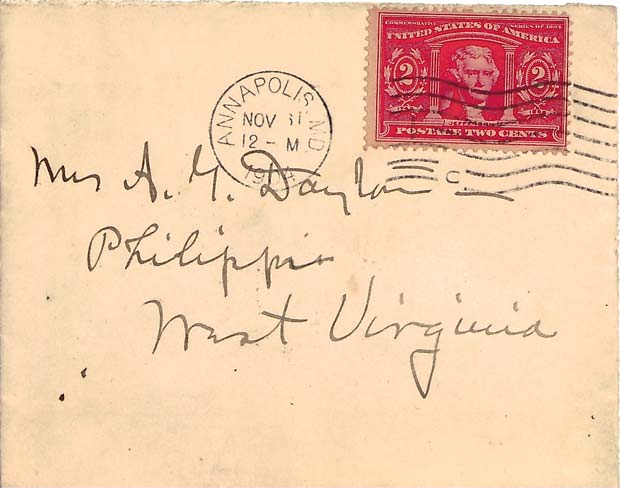 COMMEMORATIVE SERIES OF 1904
UNITED STATES OF AMERICA
2 2
JEFFERSON
POSTAGE TWO CENTS
ANNAPOLIS MD
NOV
12 - M
C
Mrs A. G. Dayton
Philippi
West Virginia